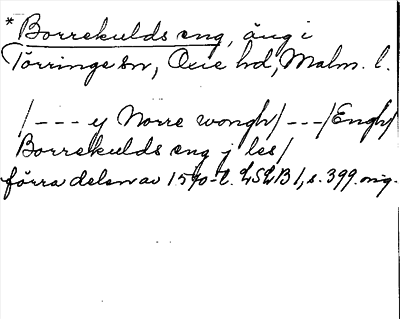 *Borrekulds eng, äng i
Törringe sn, Oxie hd, Malm. l.
/--- y Norre wongh/---/Engh/
Borrekulds eng j les/
förra delen av 1590-t. LSLB 1, s. 399. orig.